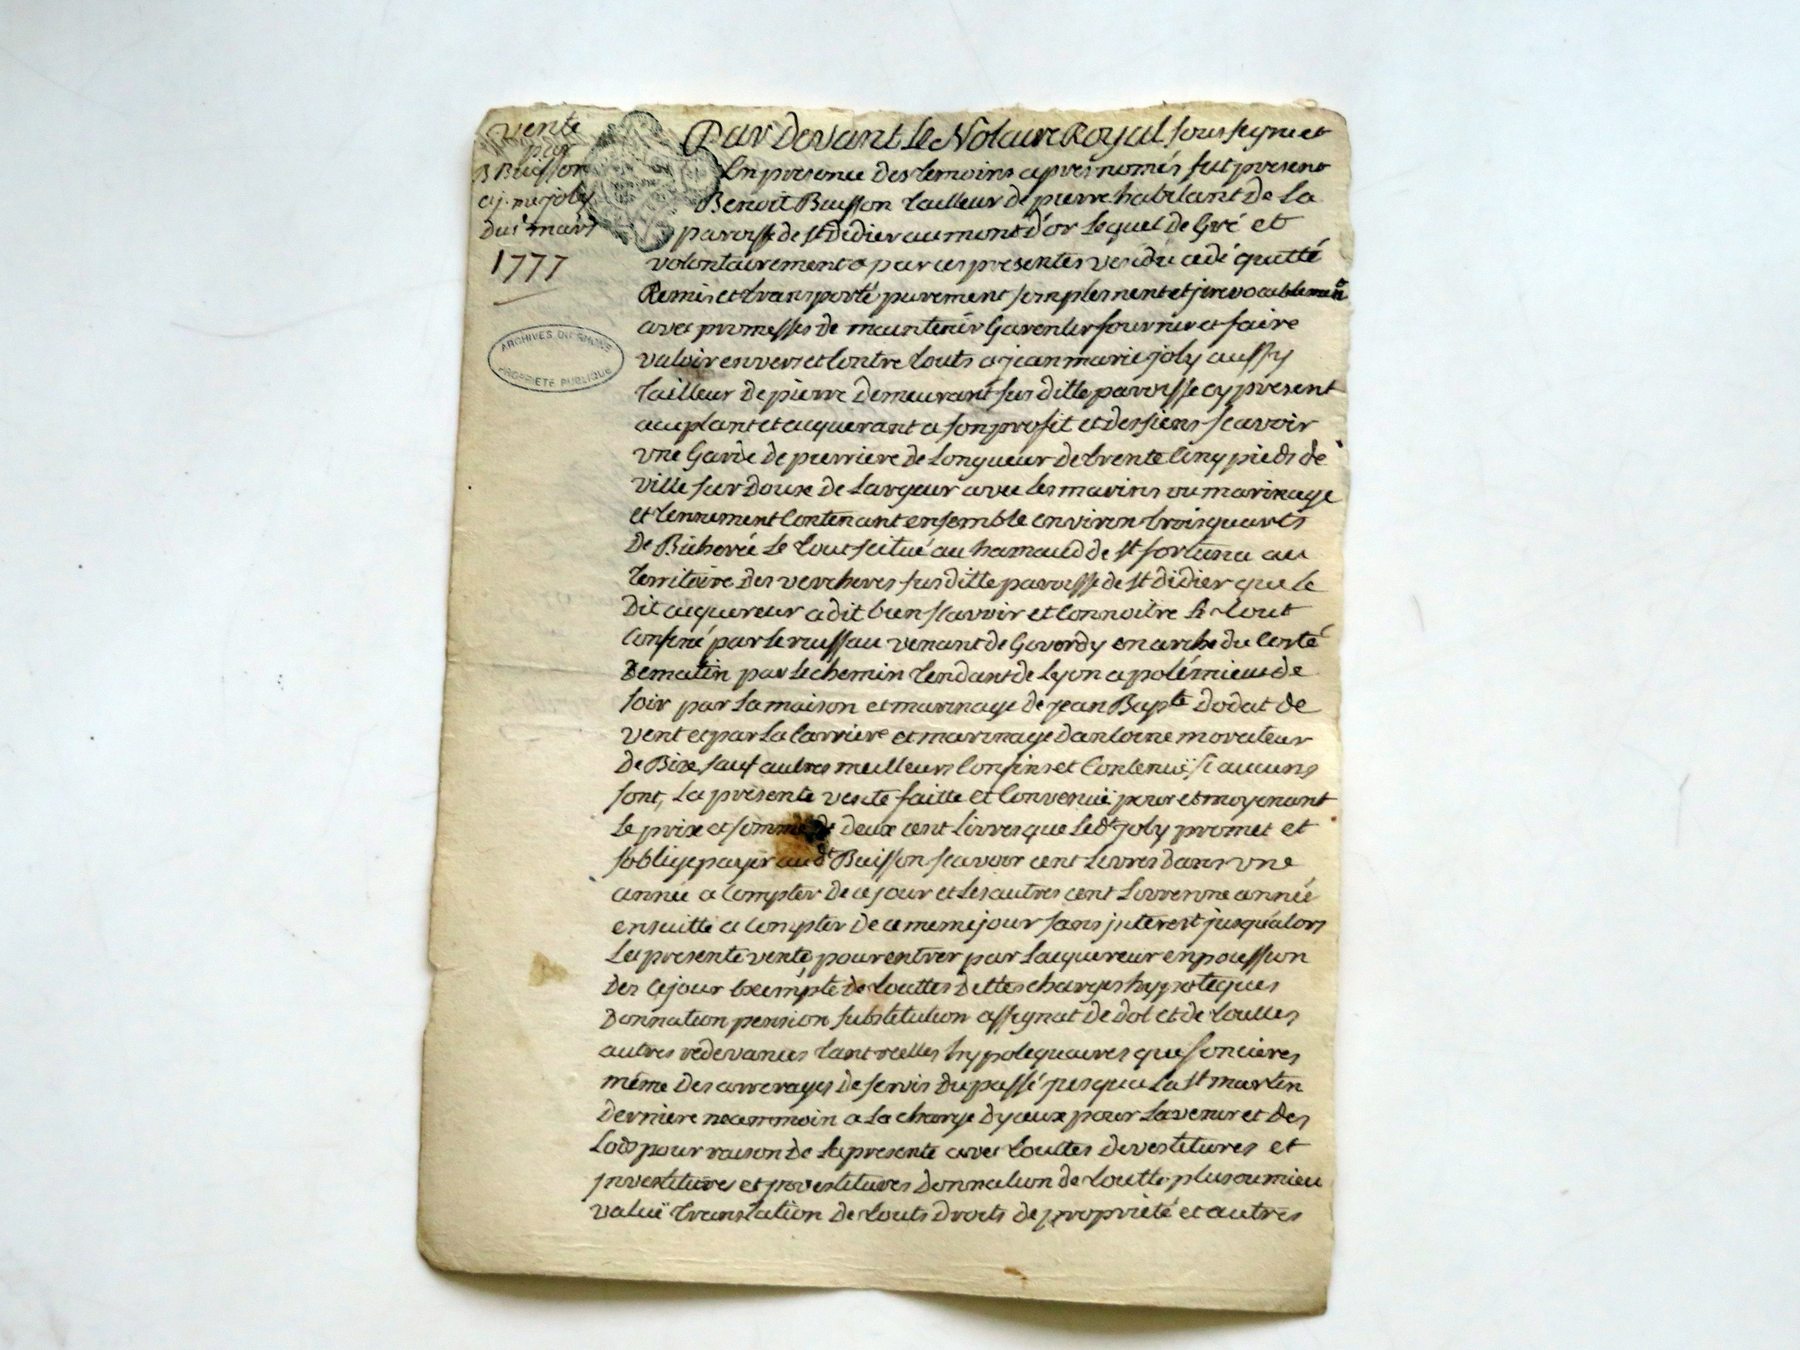 vente
par
B Buisson
a j. m. joly
Du 1 mars
1777
ARCHIVES DU RHONE
PROPRIÉTÉ PUBLIQUE
Par Devant Le Notaire Royal soussigné et
En presence Des temoins apres només fut present
Benoit Buisson tailleur de pierre habitant de La
paroisse de st Didier au mont d'or Lequel de Gré et
volontairement a par ces presentes vendu cedé quitté
Remis et transporté purement simplement et jrevocablement
avec promesses de maintenir Garentir fournir et faire
valoir envers et Contre touts a jean marie joly aussy
tailleur De pierre Demeurant susditte paroisse cy present
aceptant et aquerant a son profit et des siens scavoir
vne Garde De pierriere De Longueur De trente Cinq pieds de
ville sur Douse De Largeur avec Les marins ou marinage
et tennement Contenant ensemble environ trois quarts
De Bicherée Le tout scitué au hamaud de st fortuna au
territoire Des vercheres susditte paroisse de st didier que Le
Dit acquereur a dit bien scavoir et Connoitre Le tout
Confiné par Le ruisseau venant de Govordy en arche du Costé
De matin par Le chemin tendant de Lyon a polémieu de
soir par La maison et marinage de jean Bapte Dodat de
vent et par La Carriere et marinage Dantoine morateur
de Bise sauf autres meilleurs Confins et Contenuë si aucuns
sont, La présente vente faitte et Convenuë pour et moyenant
Le prix et somme de deux cent Livres que Ledt joly promet et
soblige payer audt Buisson scavoir cent Livres dans vne
année a Compter de ce jour et Les autres cent Livres vne année
ensuitte a Compter de ce meme jour sans jnterest jusqualors
La presente vente pour entrer par Lacquereur en possession
Des Ce jour Exempte de touttes Dettes charges hypoteques
Donnation pension substitution assignat De Dot et de touttes
autres redevances tant reelles hypotequaires que foncieres
même Des arrerages de servis Du passé jusqua La st martin
Derniere neanmoin a La charge Dyceux pour Lavenir et des
Lods pour raison de La presente avec touttes devestitures et
jnvestitures et jnvestitures Donnation de toutte plus ou mieu
valuë translation De touts Droits de propriété et autres